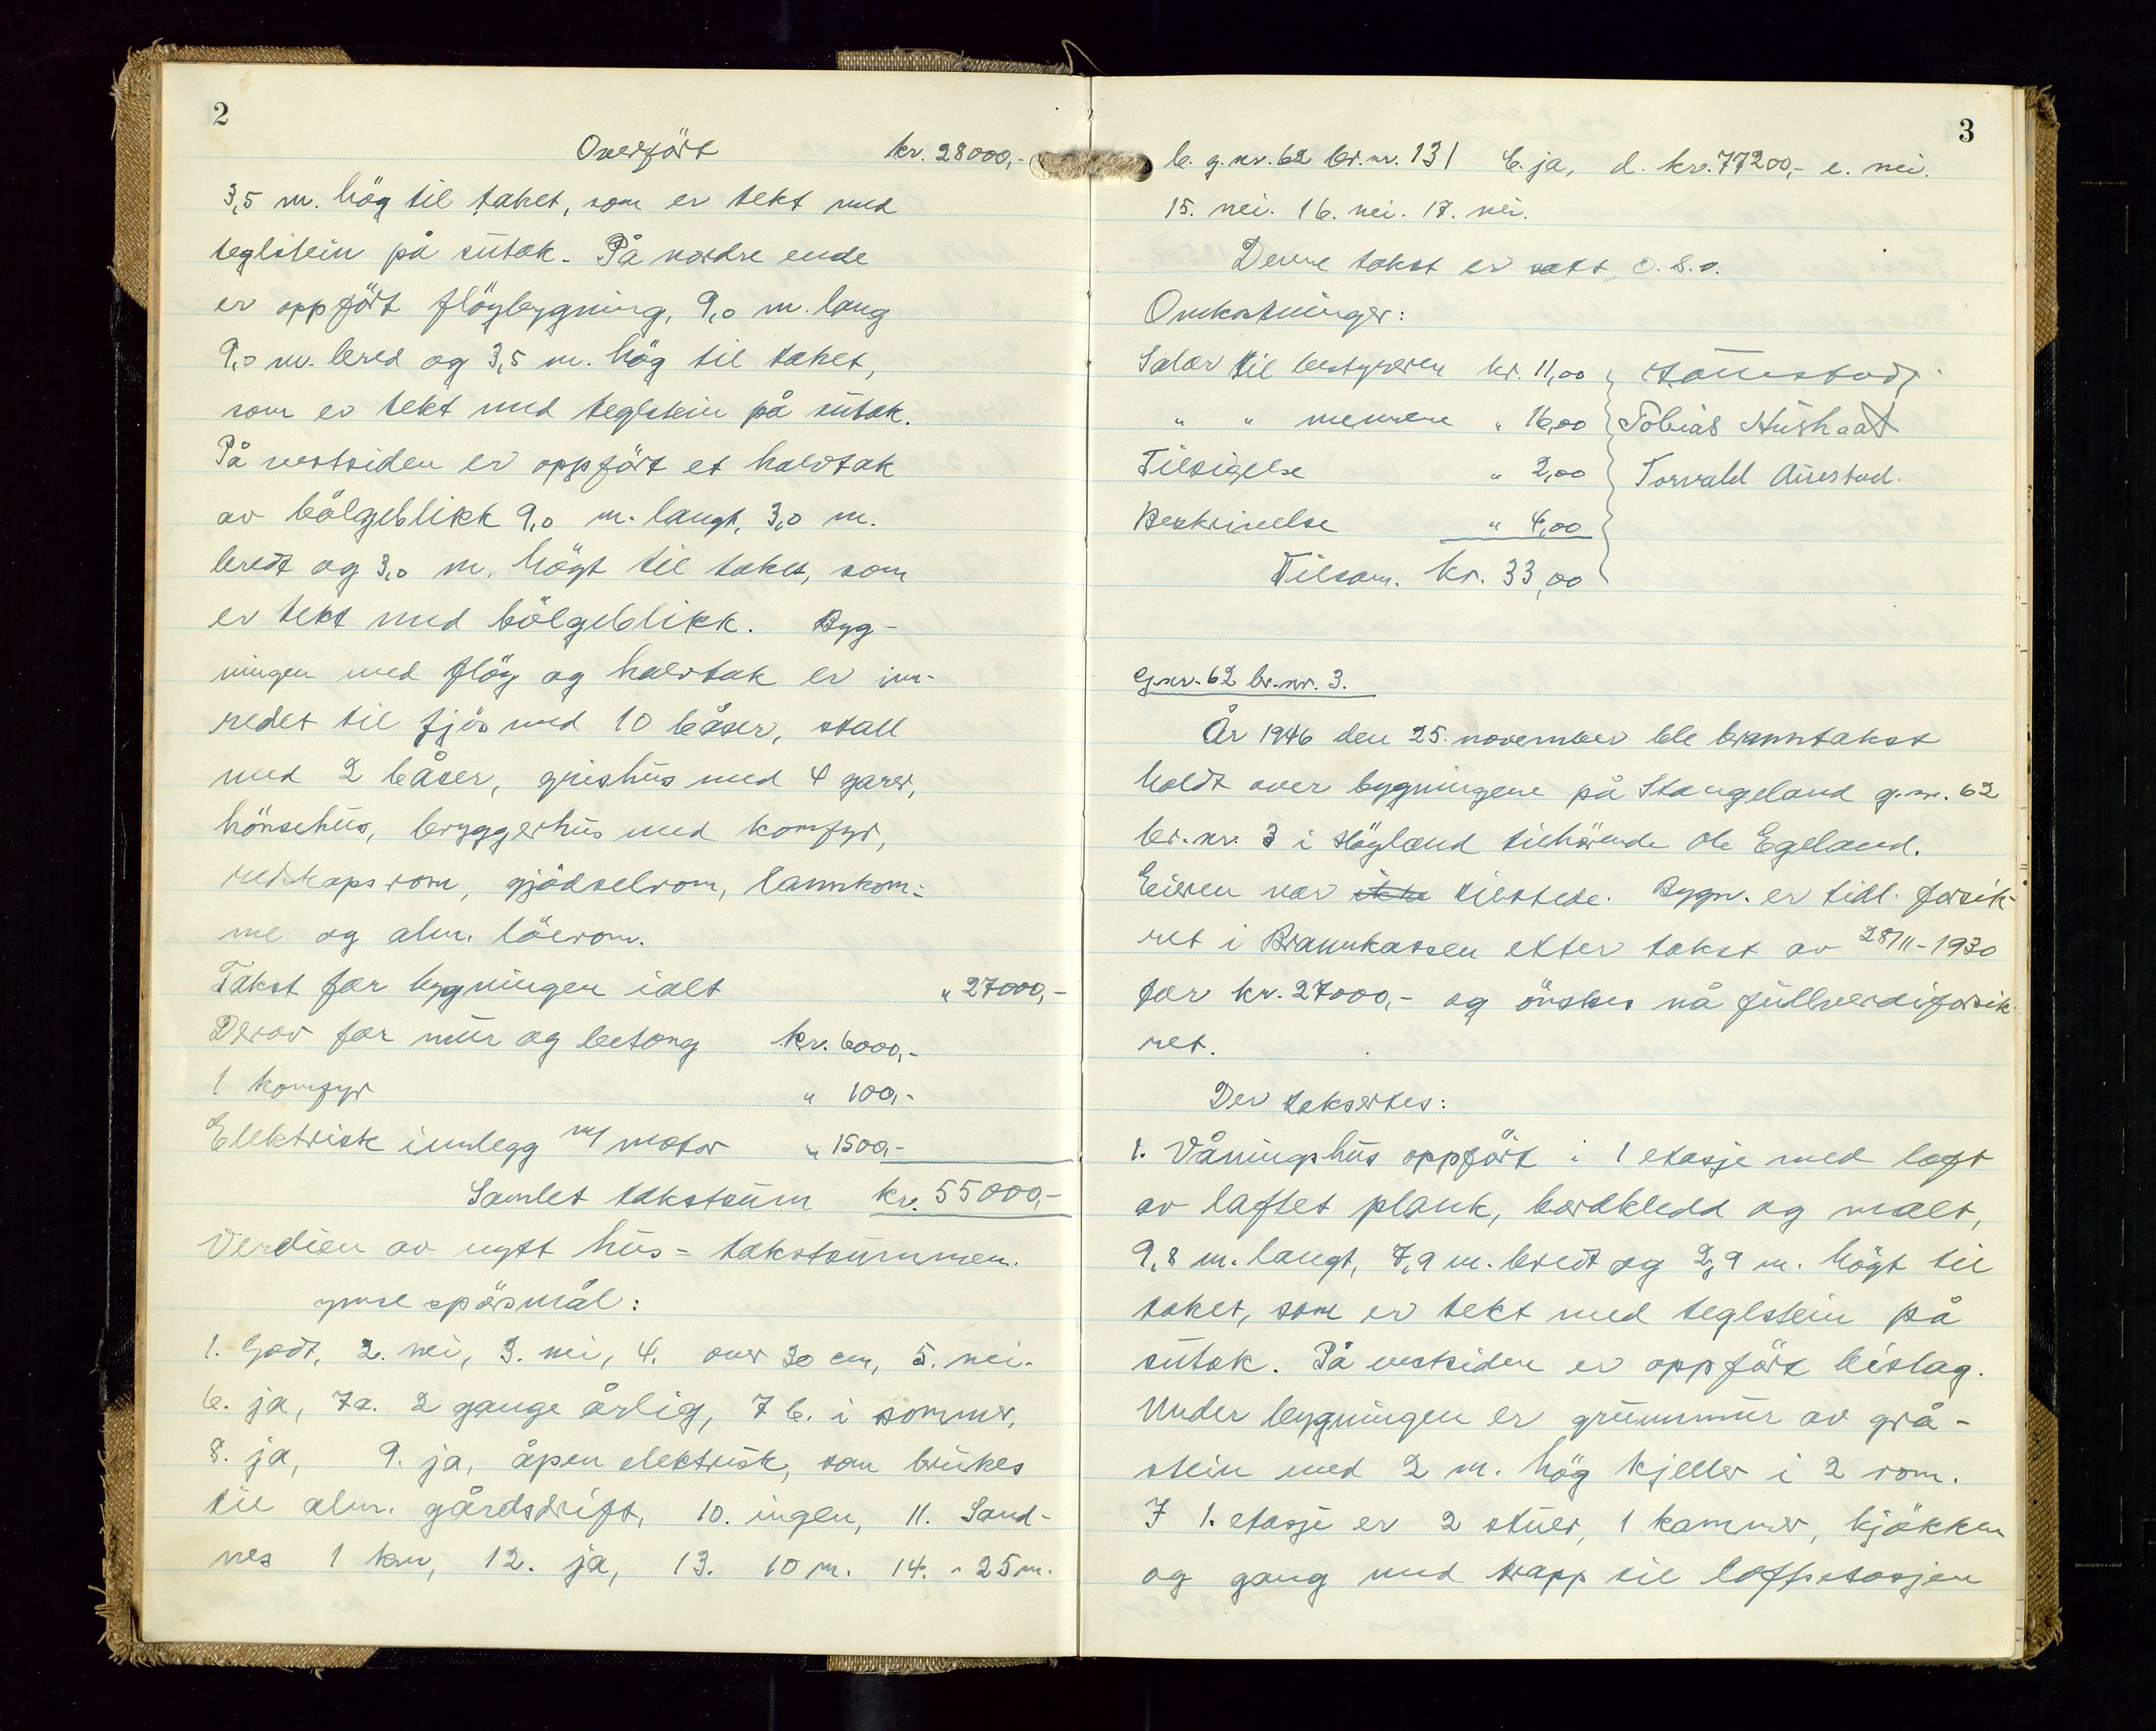 2
Overfört kr. 28000,-
3,5 m. hög til taket, som er tekt med
teglstein på sutak. På nordre ende
er oppfört flöybygning, 9,0 m. lang
9,0 m. bred og 3,5 m. hög til taket,
som er tekt med teglstein på sutak.
På vestsiden er oppfört et halvtak
av bölgeblikk 9,0 m. langt, 3,0 m.
bredt og 3,0 m. högt til taket, som
er tekt med bölgeblikk. Byg-
ningen med flöy og halvtak er inn-
redet til fjös med 10 båser, stall
med 2 båser, grishus med 4 garer,
hönsehus, bryggerhus med komfyr,
redskapsrom, gjödselrom, tannkom-
me og alm. löerom.
Takst for bygningen ialt " 27000,-
Derav for mur og betong kr. 6000,-
1 komfyr " 100,-
Elektrisk innlegg m/ motor " 1500,-
Samlet takstsum kr. 55000,-
Verdien av nytt hus = takstsummen.
ymse spörsmål:
1. Godt, 2. nei, 3. nei, 4. over 30 cm, 5. nei.
6. ja, 7a. 2 gange årlig, 7 b. i sommer,
8. ja, 9. ja, åpen elektrisk, som brukes
til alm. gårdsdrift, 10. ingen, 11. Sand-
nes 1 km, 12. ja, 13. 10 m. 14. " 25 m.
3
b. g.nr. 62 br.nr. 131 c. ja, d. kr. 77200,- e. nei.
15. nei. 16. nei. 17. nei.
Denne takst er satt o.s.v.
Omkostninger:
Salær til bestyreren kr. 11,00
" " mennene " 16,00 Tobias Hushaat
Tilsigelse " 2,00 Torvald Auestad.
Beskrivelse " 4,00
Tilsam. kr. 33,00
G.nr. 62 br.nr. 3.
År 1946 den 25. november ble branntakst
holdt over bygningene på Stangeland g.nr. 62
br.nr. 3 i Höyland tilhörende Ole Egeland.
Eieren var ikke tilstede. Bygn. er tidl. forsik-
ret i Brannkassen etter takst av 28/11-1930
for kr. 27000,- og önskes nå fullverdiforsik-
ret.
Der taksertes:
1. Våningshus oppfört i 1 etasje med loft
av laftet plank, bordkledd og malt,
9,8 m. langt, 7,9 m. bredt og 2,9 m. högt til
taket, som er tekt med teglstein på
sutak. På vestsiden er oppfört bislag.
Under bygningen er grunnmur av grå-
stein med 2 m. hög kjeller i 2 rom.
I 1. etasje er 2 stuer, 1 kammer, kjökken
og gang med trapp til loftsetasjen